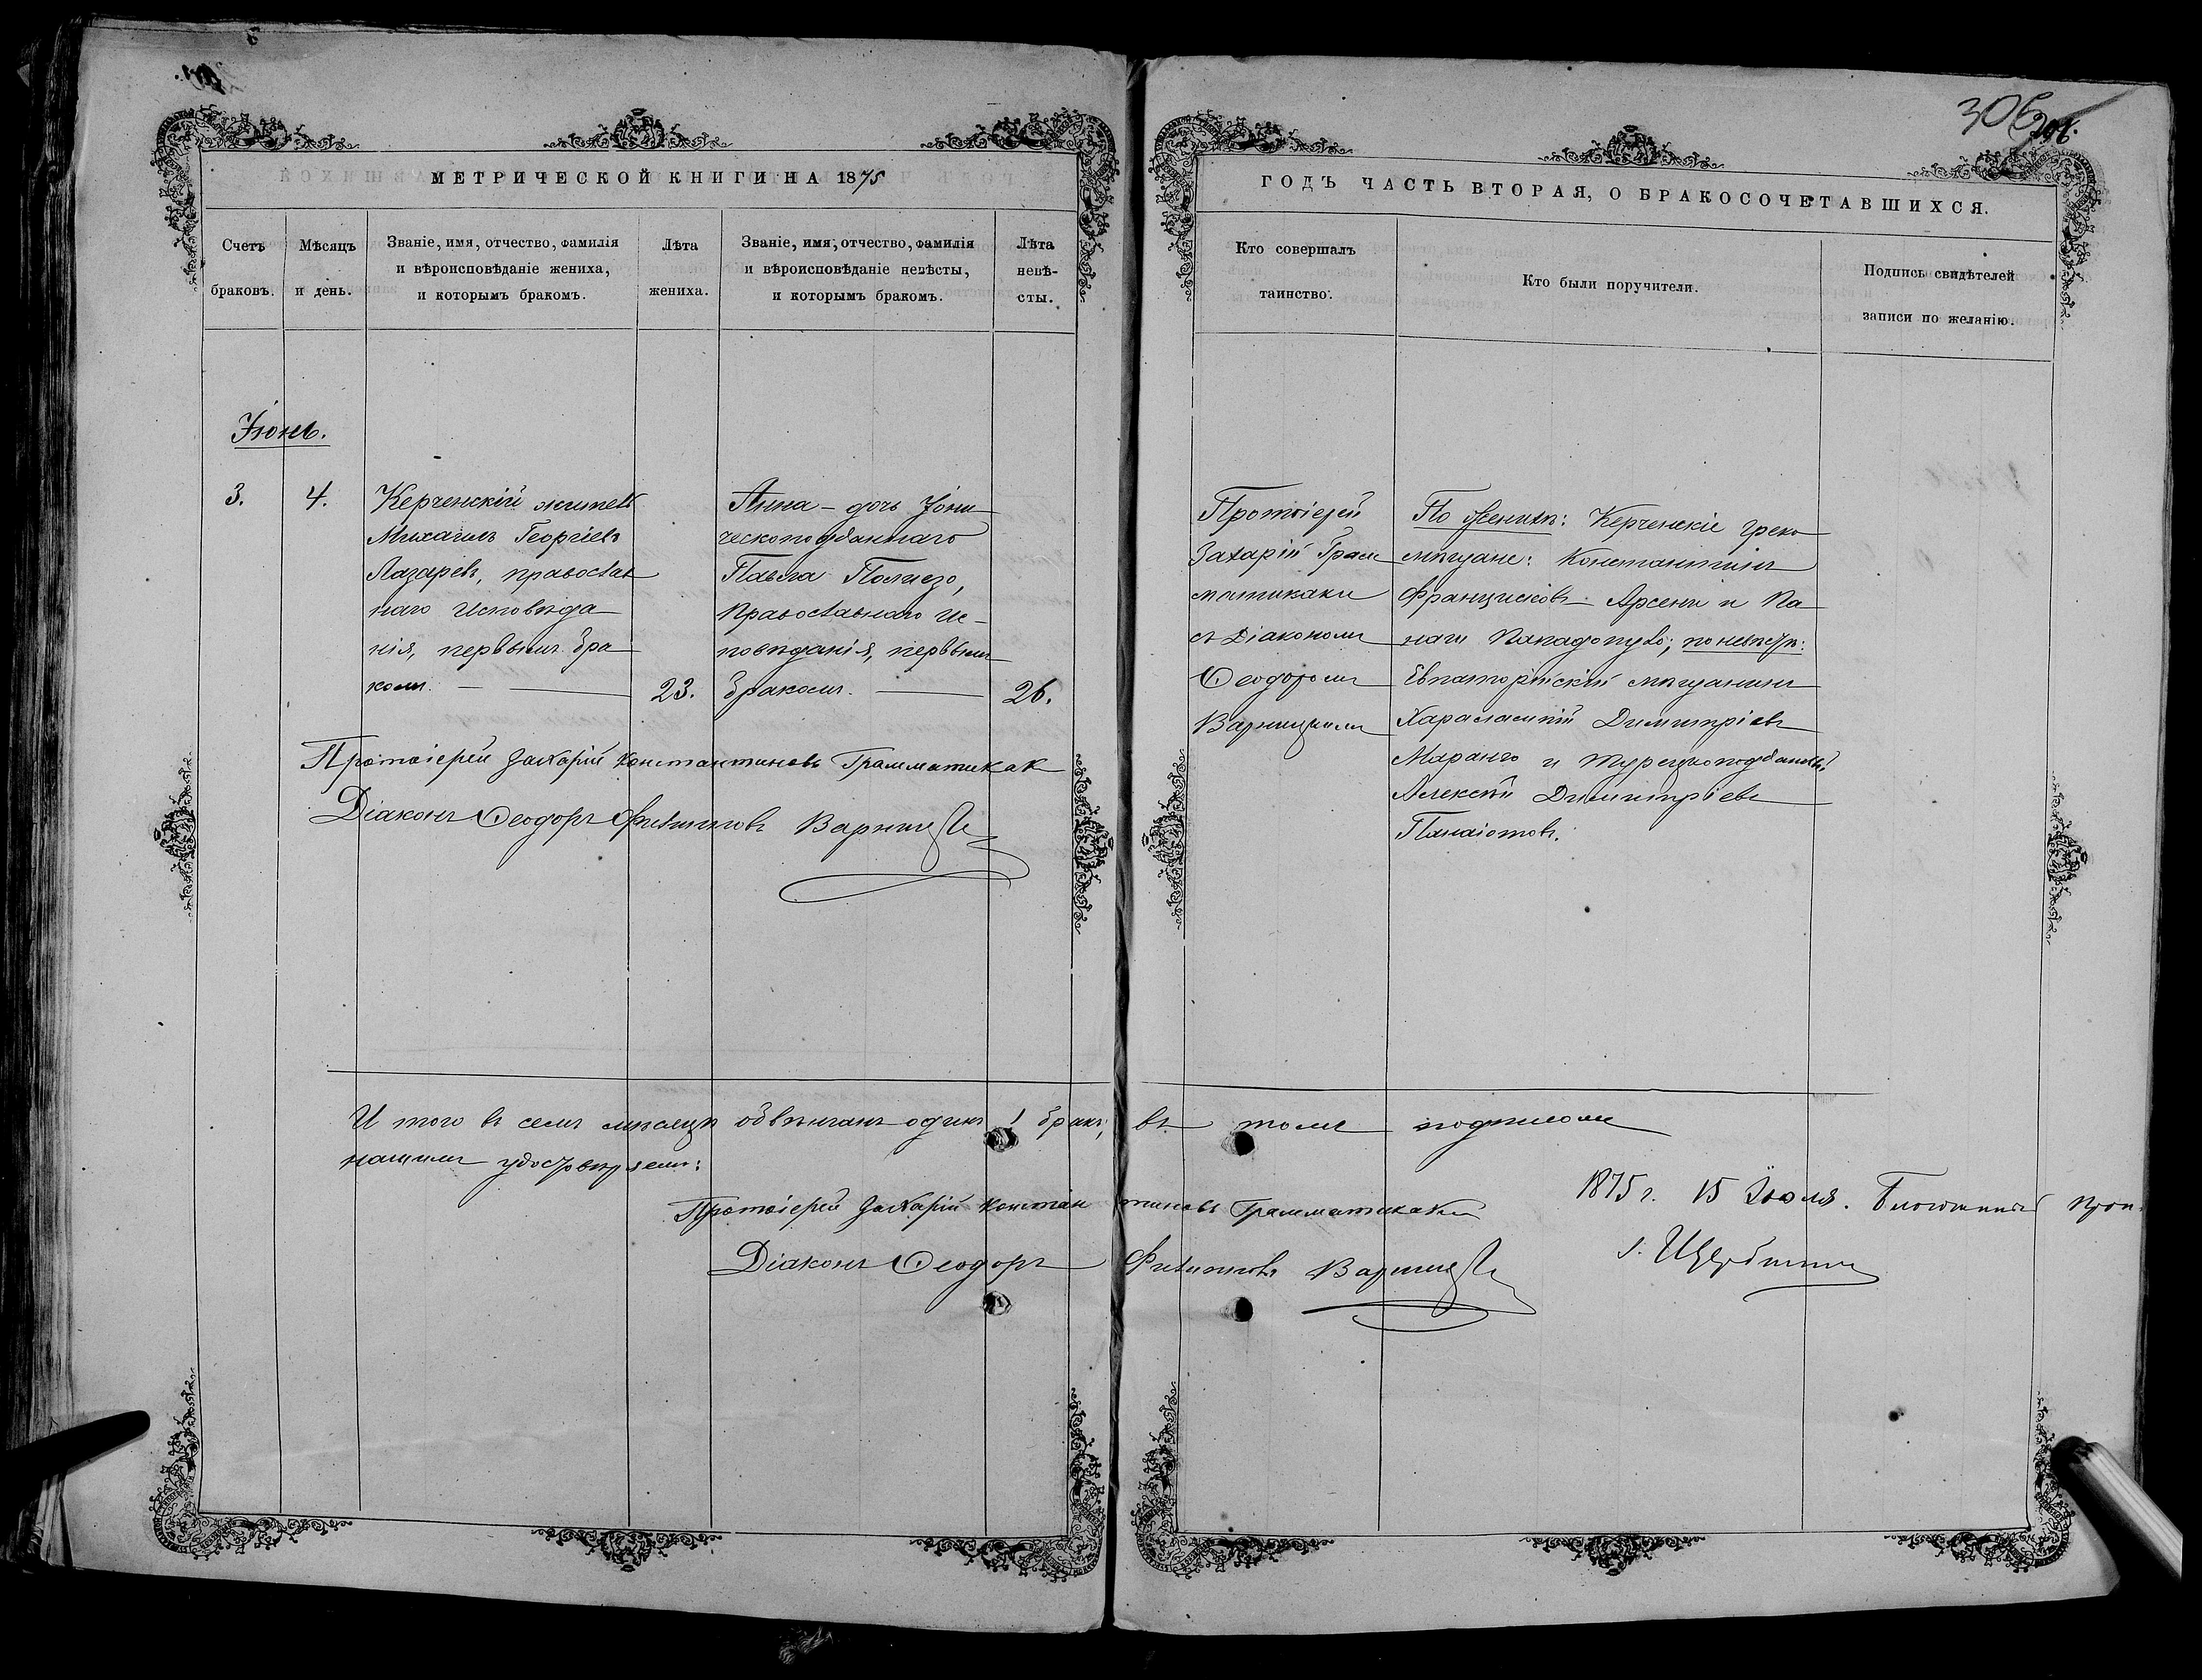 306
306.
МЕТРИЧЕСКОЙ КНИГИ НА 1875
ГОДЪ ЧАСТЬ ВТОРАЯ, О БРАКОСОЧЕТАВШИХСЯ.
Счетъ
браковъ.
Мѣсяцъ
и день.
Званіе, имя, отчество, фамилія
и вѣроисповѣданіе жениха,
и которымъ бракомъ.
Лѣта
жениха.
Званіе, имя, отчество, фамилія
и вѣроисповѣданіе невѣсты,
и которымъ бракомъ.
Лѣта
невѣ-
сты.
Кто совершалъ
таинство.
Кто были поручители.
Подпись свидѣтелей
записи по желанію.
Іюнь.
3.
4.
Керченскій житель
Михаилъ Георгіевъ
Лазаревъ, православ
наго исповѣда
нія, первымъ бра
комъ.
23.
Анна - дочь Іони
ческоподданнаго
Павла
Православнаго Ис-
повѣданія, первымъ
бракомъ.
26.
Протоіерей
Захарій Грам
матикаки
съ Діакономъ
Ѳеодоромъ
Варницкимъ
По женихѣ: Керченскіе греко
мѣщане: Константинъ
Францисковъ Арсени и Па
наги Пападопуло; по невѣстѣ:
Евпаторійскій мѣщанинъ
Харалампій Димитріевъ
Маранго и турецкоподданный
Алексѣй Димитріевъ
Панаіотовъ.
Протоіерей Захарій Константиновъ Грамматикаки
Діаконъ Ѳеодоръ Филипповъ
И того въ семъ мѣсяцѣ обвѣнчанъ одинъ 1 бракъ, въ томъ подписомъ
нашимъ удостовѣряемъ:
Протоіерей Захарій Константиновъ Грамматикаки
Діаконъ Ѳеодоръ Филипповъ
1875 г. 15 Іюля. Благочинный Прот.
І. Щербина